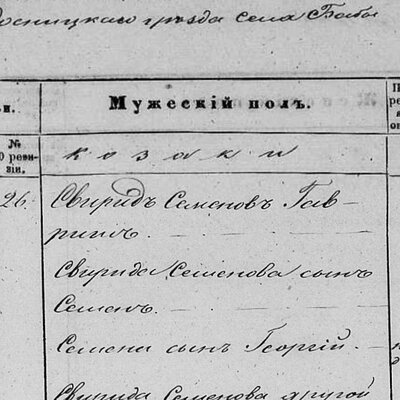 сосницкаго уезда села Бабы
Мужескій полъ.
№
козаки
26. Свиридъ Семеновъ Гав-
ришъ.
Свирида Семенова сынъ
Семенъ.
Семена сынъ Георгій
Свирида Семенова другой